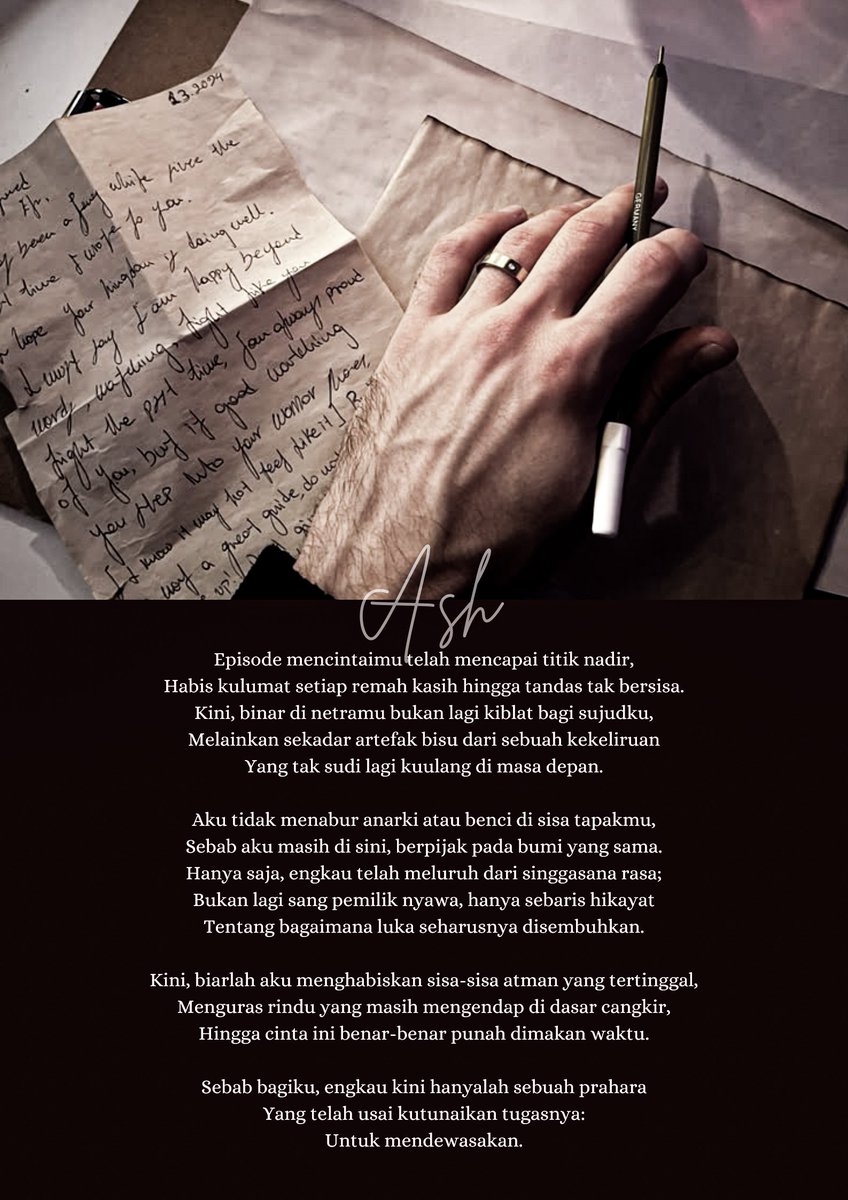 13.2024
been a long while since the
time I wrote to you.
hope your kingdom is doing well.
I must say I am happy beyond
words, watching, fight like you
fight the past time, I am always proud
of you, but it good watching
you step into your warrior mode,
I know it may not feel like it
a great guide, do not
GERMANY
Ash
Episode mencintaimu telah mencapai titik nadir,
Habis kulumat setiap remah kasih hingga tandas tak bersisa.
Kini, binar di netramu bukan lagi kiblat bagi sujudku,
Melainkan sekadar artefak bisu dari sebuah kekeliruan
Yang tak sudi lagi kuulang di masa depan.
Aku tidak menabur anarki atau benci di sisa tapakmu,
Sebab aku masih di sini, berpijak pada bumi yang sama.
Hanya saja, engkau telah meluruh dari singgasana rasa;
Bukan lagi sang pemilik nyawa, hanya sebaris hikayat
Tentang bagaimana luka seharusnya disembuhkan.
Kini, biarlah aku menghabiskan sisa-sisa atman yang tertinggal,
Menguras rindu yang masih mengendap di dasar cangkir,
Hingga cinta ini benar-benar punah dimakan waktu.
Sebab bagiku, engkau kini hanyalah sebuah prahara
Yang telah usai kutunaikan tugasnya:
Untuk mendewasakan.